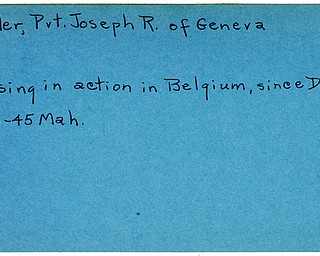 ler, Pvt. Joseph R. of Geneva
sing in action in Belgium, since D
-45 Mah.